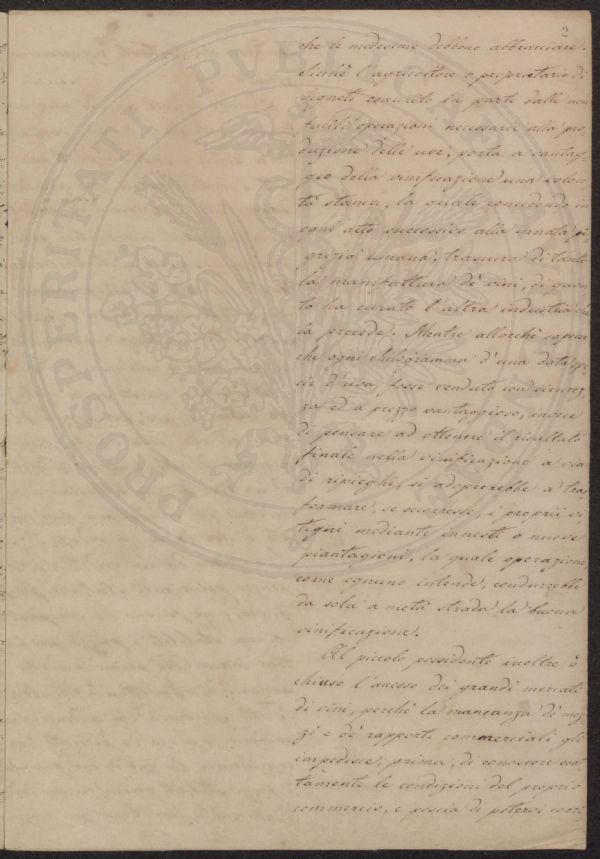 2
che le medesime debbono abbracciare.
Sicchè l'agricoltore o proprietario di
vigneti esaurito in parte dalle non
facili operazioni necessarie alla pro
duzione delle uve, porta a vantag
gio della vinificazione una volon
tà stanca, la quale concedendo in
ogni atto successivo alla innata pi
grizia umana, trascura di tanto
la manifattura de' vini, di quan
to ha curato l'altra industria che
la precede. Mentre allorchè sapesse
che ogni chilogramma d'una data spe
cie d'uva, fosse venduto con sicurez
za ed a prezzo vantaggioso, invece
di pensare ad ottenere il risultato
finale nella vinificazione a via
di ripieghi, si adoprerebbe a tras
formare, se occorresse, i proprii vi
tigni mediante innesti o nuove
piantagioni, la quale operazione,
come ognuno intende, condurrebbe
da sola a metà strada la buona
vinificazione.
Al piccolo possidente inoltre è
chiuso l'accesso dei grandi mercati
di vini, perchè la mancanza de' mez
zi e de' rapporti commerciali gli
impedisce, prima, di conoscere esat
tamente le condizioni del proprio
commercio, e poscia di potervi corri
PROSPERITATI PVBLICAE